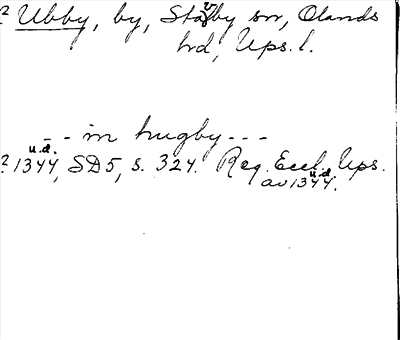 ? Ubby, by, Stavby sn, Olands
hd, Ups. l.
- - in hugby - - -
? 1344 u.d., SD5, s. 324. Reg. Eccl. Ups.
av 1344 u.d.